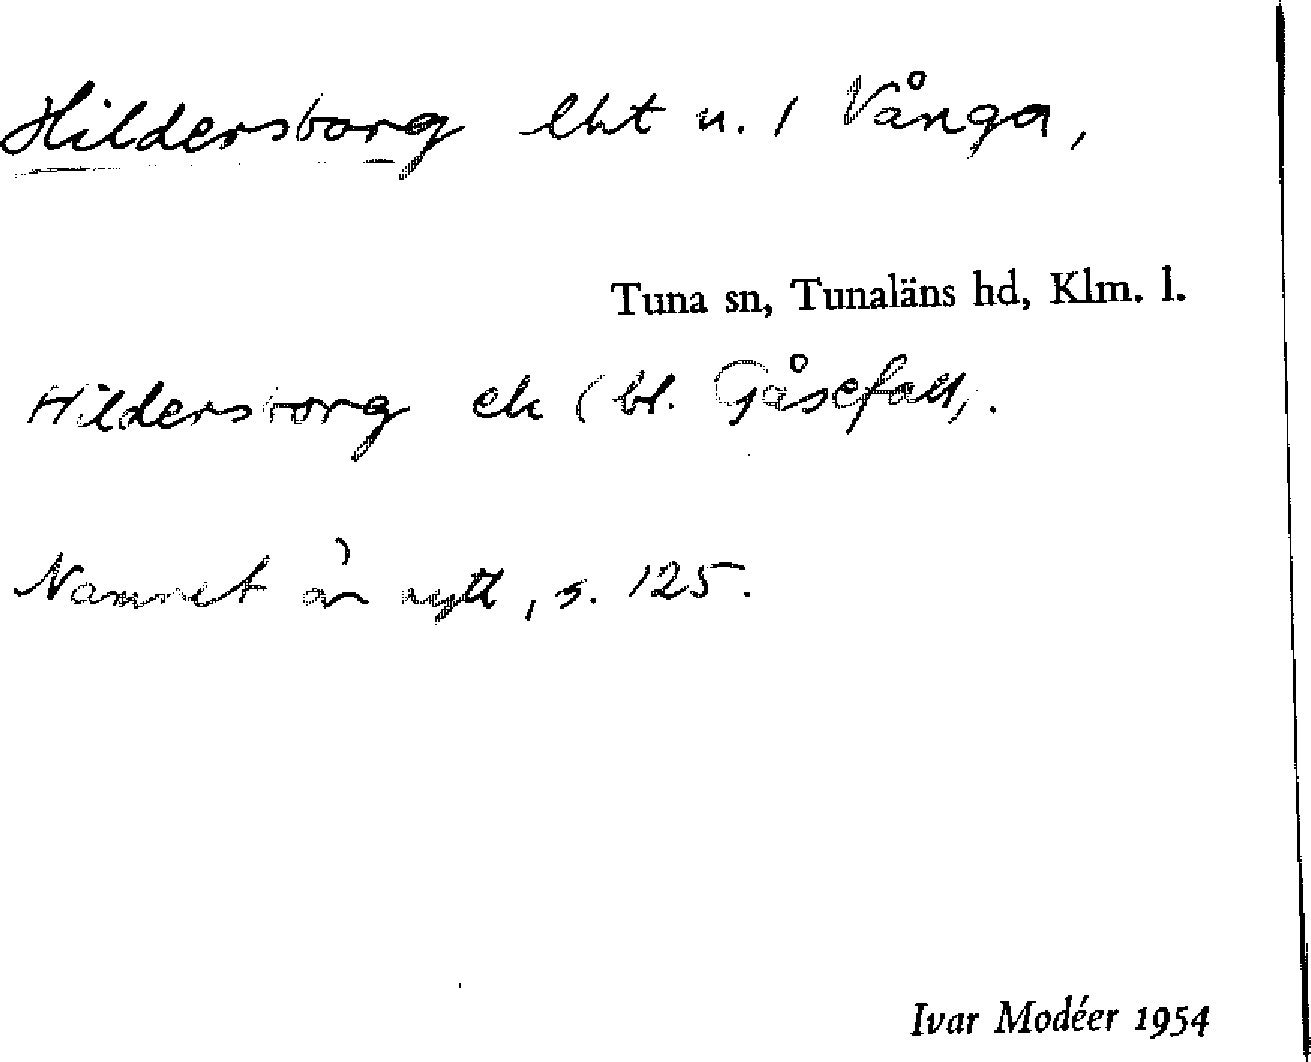 Hildersborg lht u. 1 Vånga,
Tuna sn, Tunaläns hd, Klm. l.
Hildersborg ek (bl. Gåsefall).
Namnet är nytt, s. 125.
Ivar Modéer 1954